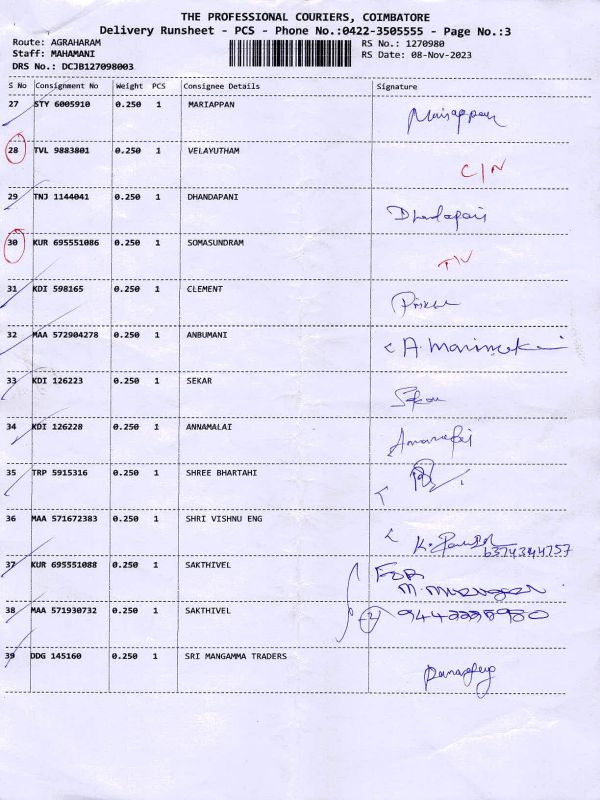 THE PROFESSIONAL COURIERS, COIMBATORE
Delivery Runsheet - PCS - Phone No.:0422-3505555 - Page No.:3
Route: AGRAHARAM RS No.: 1270980
Staff: MAHAMANI RS Date: 08-Nov-2023
DRS No.: DCJB127098003
S No Consignment No Weight PCS Consignee Details Signature
27 STY 6005910 0.250 1 MARIAPPAN Mariappan
28 TVL 9883801 0.250 1 VELAYUTHAM C/N
29 TNJ 1144041 0.250 1 DHANDAPANI Dhandapani
30 KUR 695551086 0.250 1 SOMASUNDRAM
31 KDI 598165 0.250 1 CLEMENT
32 MAA 572904278 0.250 1 ANBUMANI A.
33 KDI 126223 0.250 1 SEKAR Sekar
34 KDI 126228 0.250 1 ANNAMALAI
35 TRP 5915316 0.250 1 SHREE BHARTAHI
36 MAA 571672383 0.250 1 SHRI VISHNU ENG K.
6374344757
37 KUR 695551088 0.250 1 SAKTHIVEL FOR
M.
38 MAA 571930732 0.250 1 SAKTHIVEL
39 DDG 145160 0.250 1 SRI MANGAMMA TRADERS